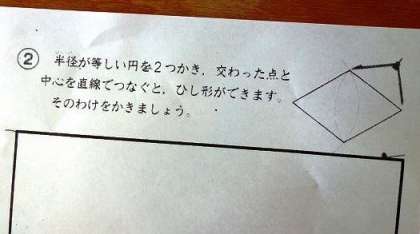 ② 半径が等しい円を2つかき，交わった点と
中心を直線でつなぐと，ひし形ができます。
そのわけをかきましょう。